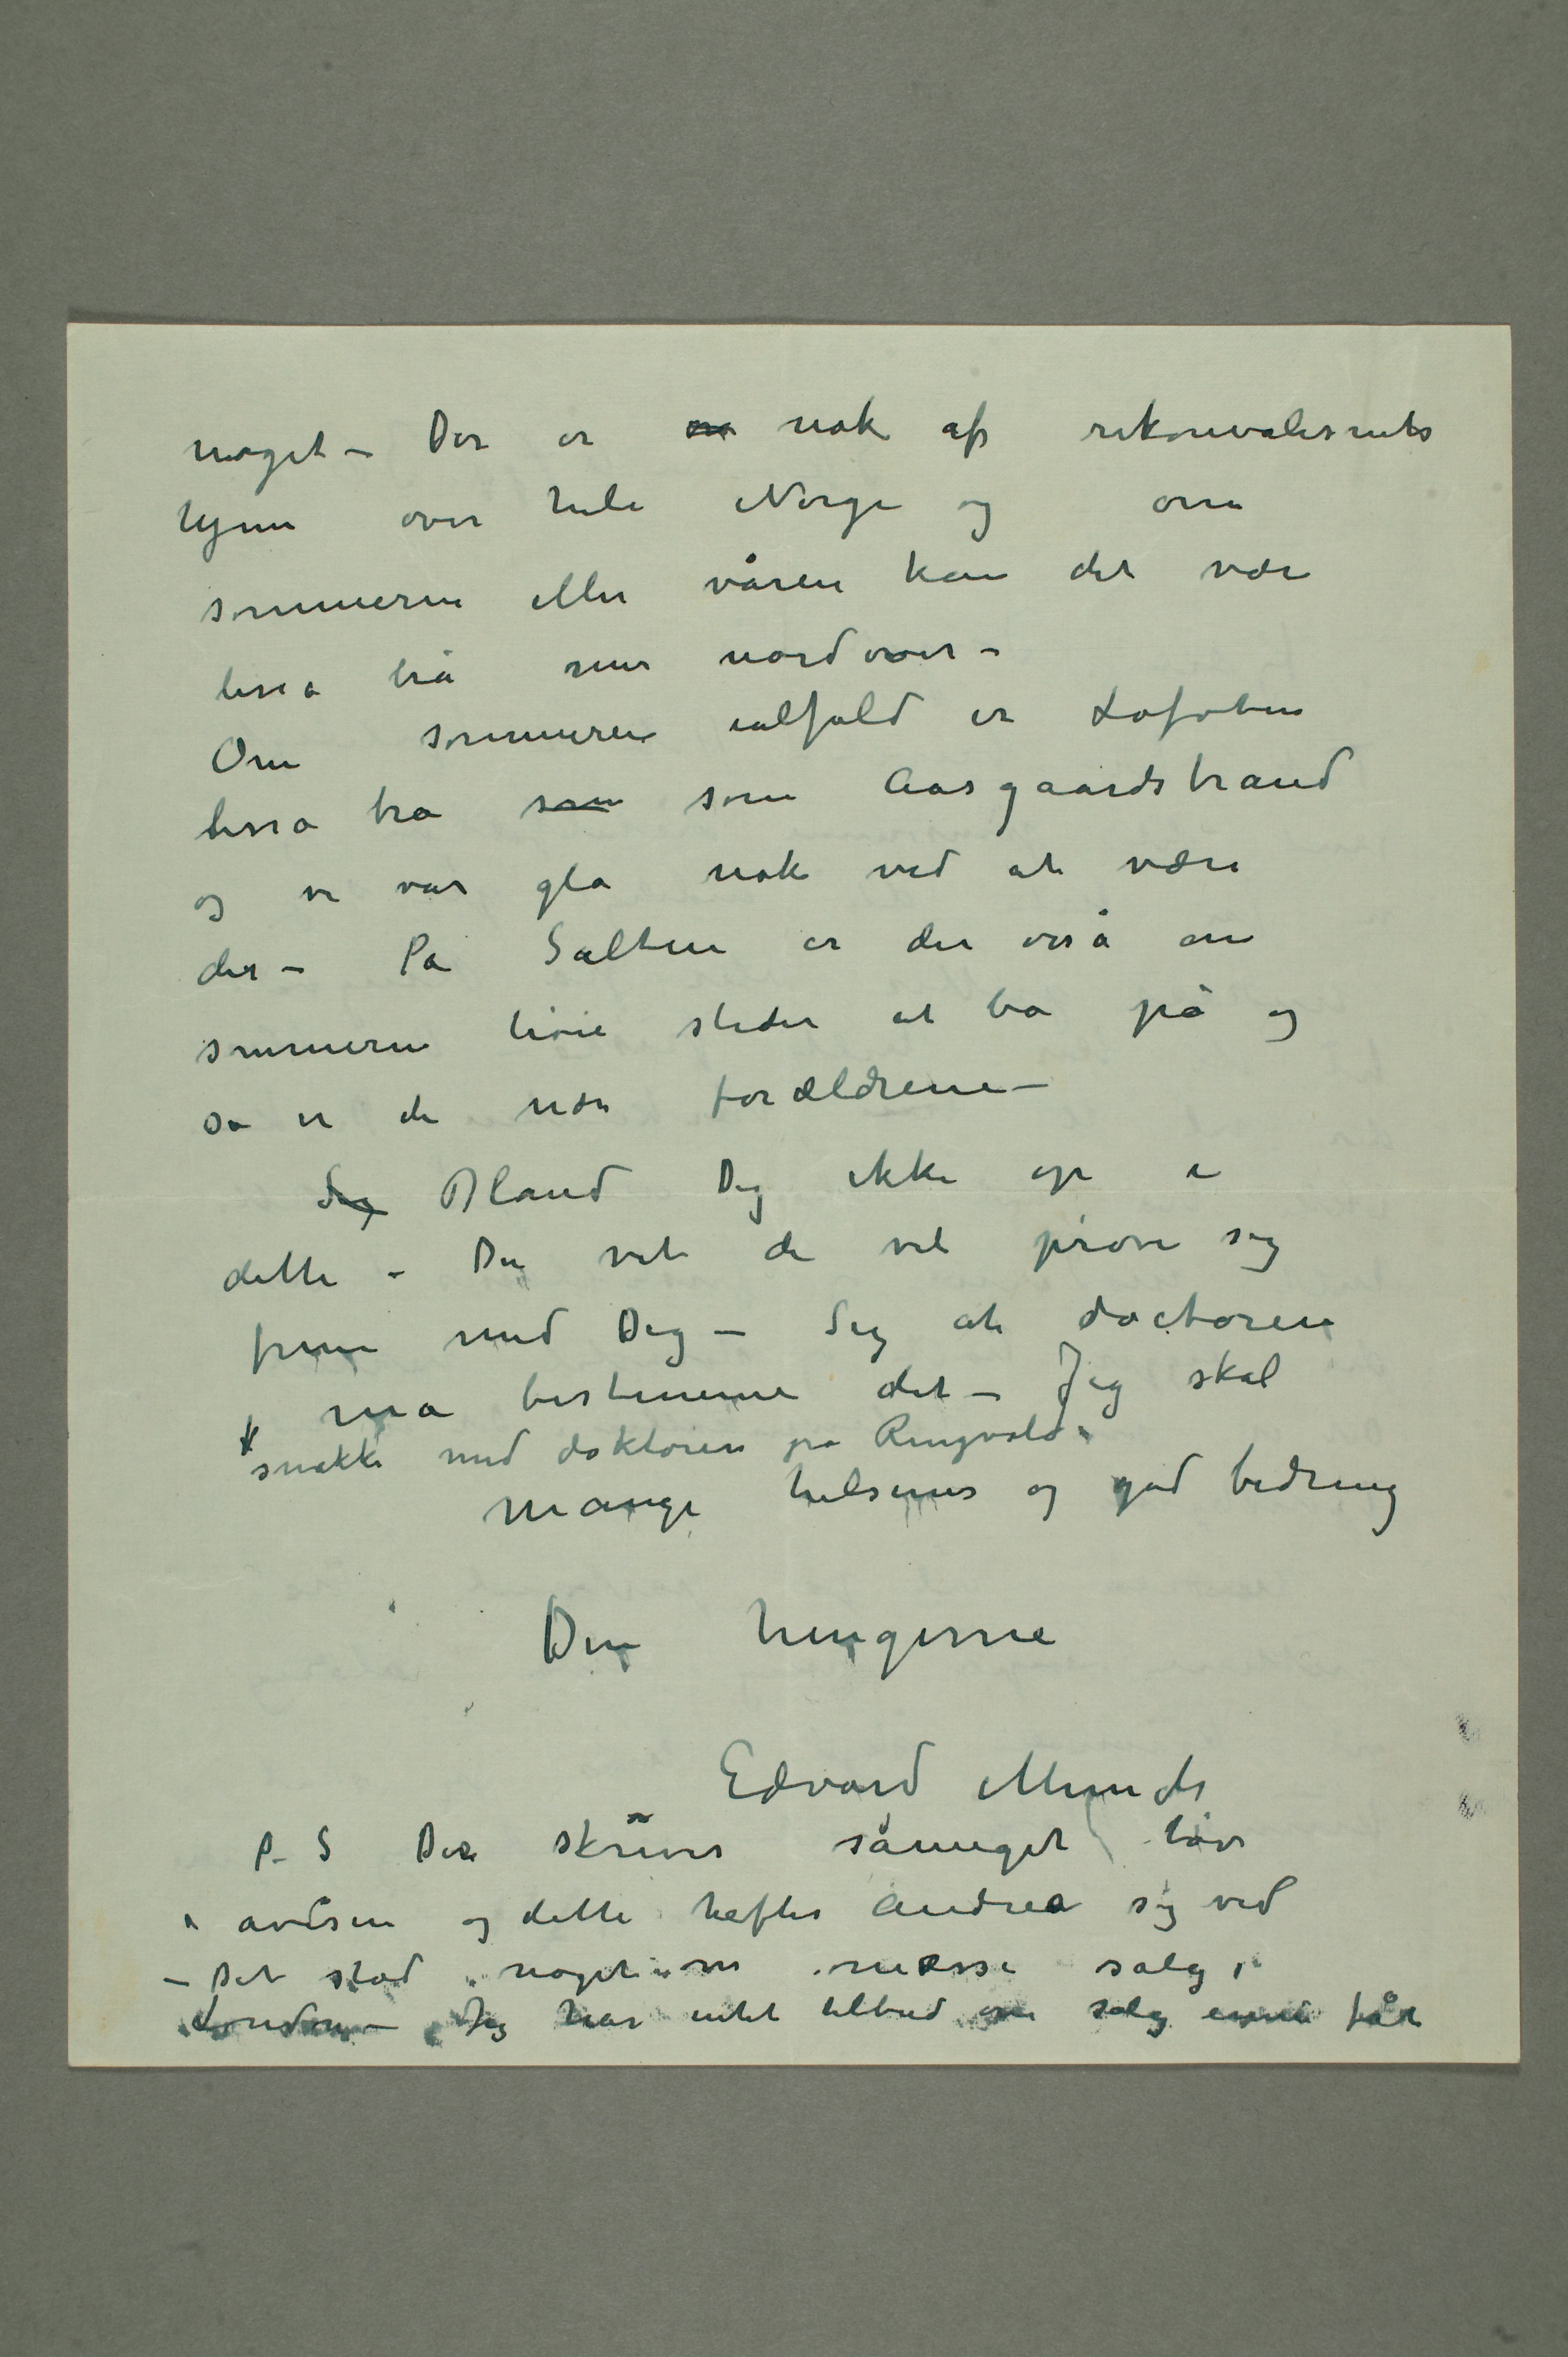 noget – Der er nok af rekonvalesents
hjem over hele Norge og om
sommeren eller våren kan det være
lisså brå mer nordover –
Om sommeren ialfald er Lofoten
lisså bra som som Aasgaardstrand
og vi var gla nok ved at være
der – På Salten er der osså om
sommeren høie steder at bo på og
så er de nær forældrene –
Sig Bland Dig ikke op i
dette – Du vet de vil prøve sig
frem med Dig – Sig at doctoren
må bestemme det – Jeg skal
snakke med doktoren på Ringvold
Mange hilsener og god bedring
Din hengivne
Edvard Munch
P. S Der skrives såmeget tøv
i avisen og dette hefter Andrea sig ved
– Det stod noget om messe salg i
London – Jeg har intet tilbud om salg ennu fåt